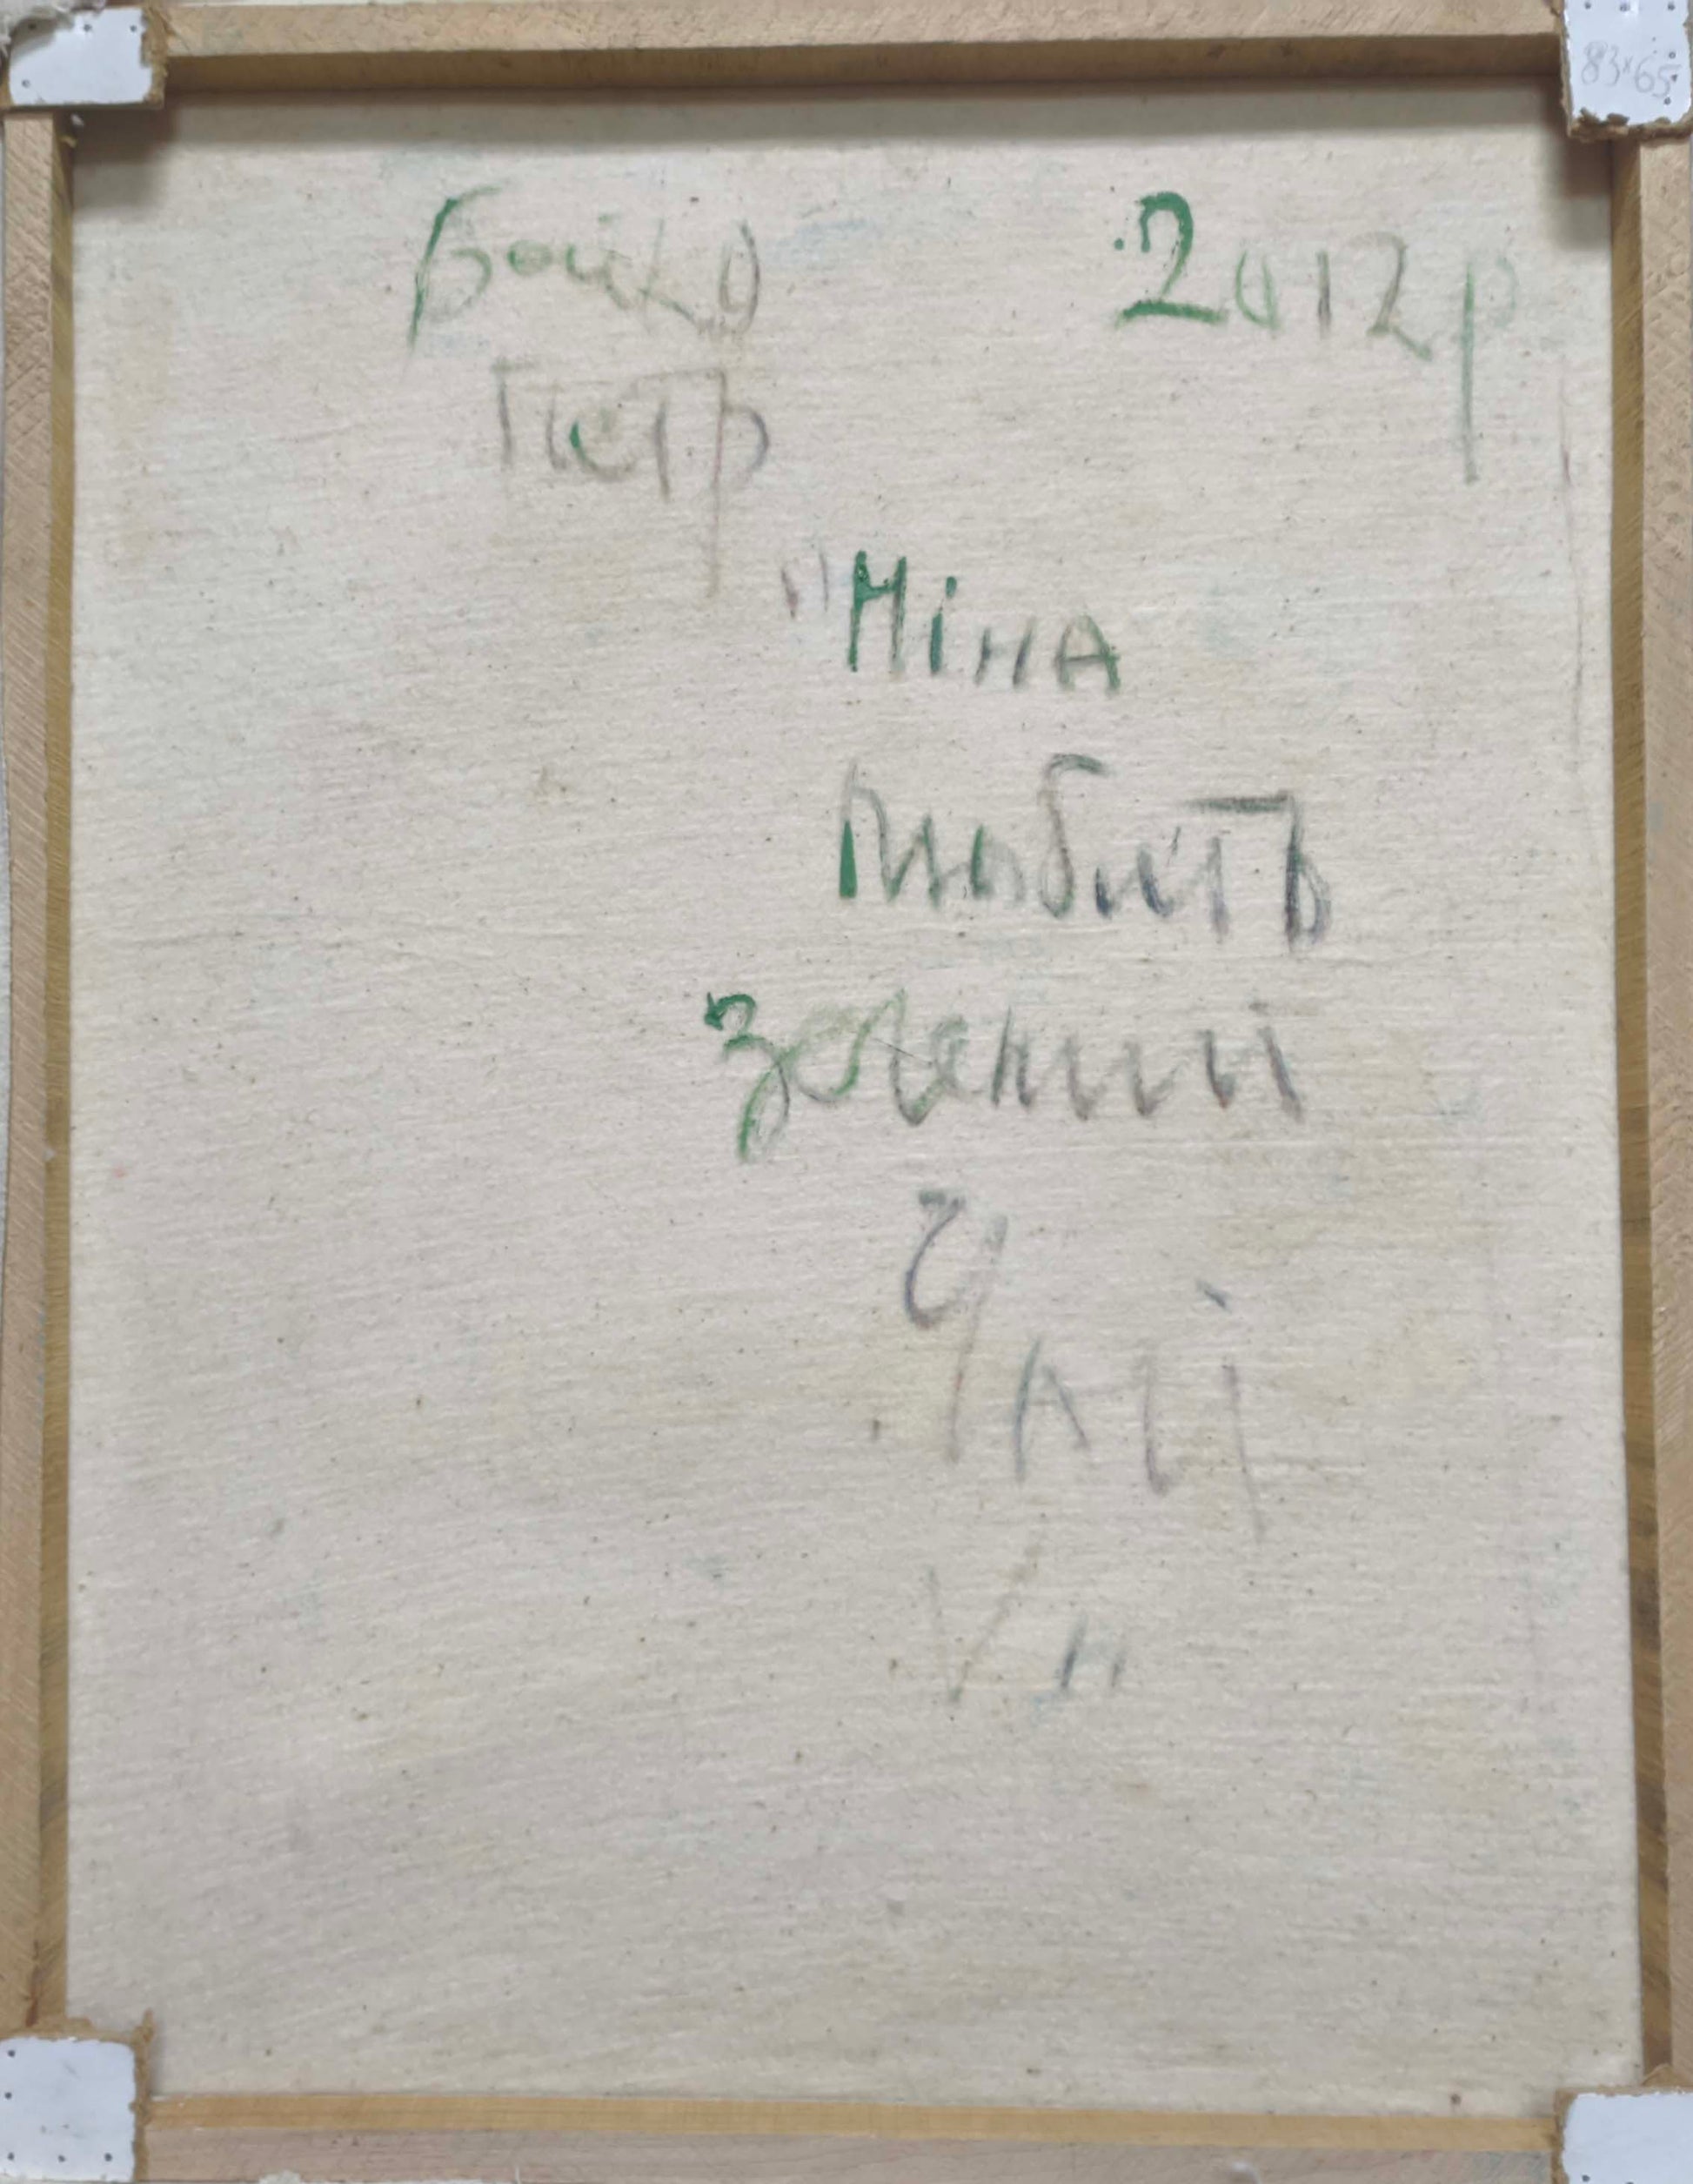 83×65
Бойко 2012р
Петр
"Ніна
любить
зелений
Чай